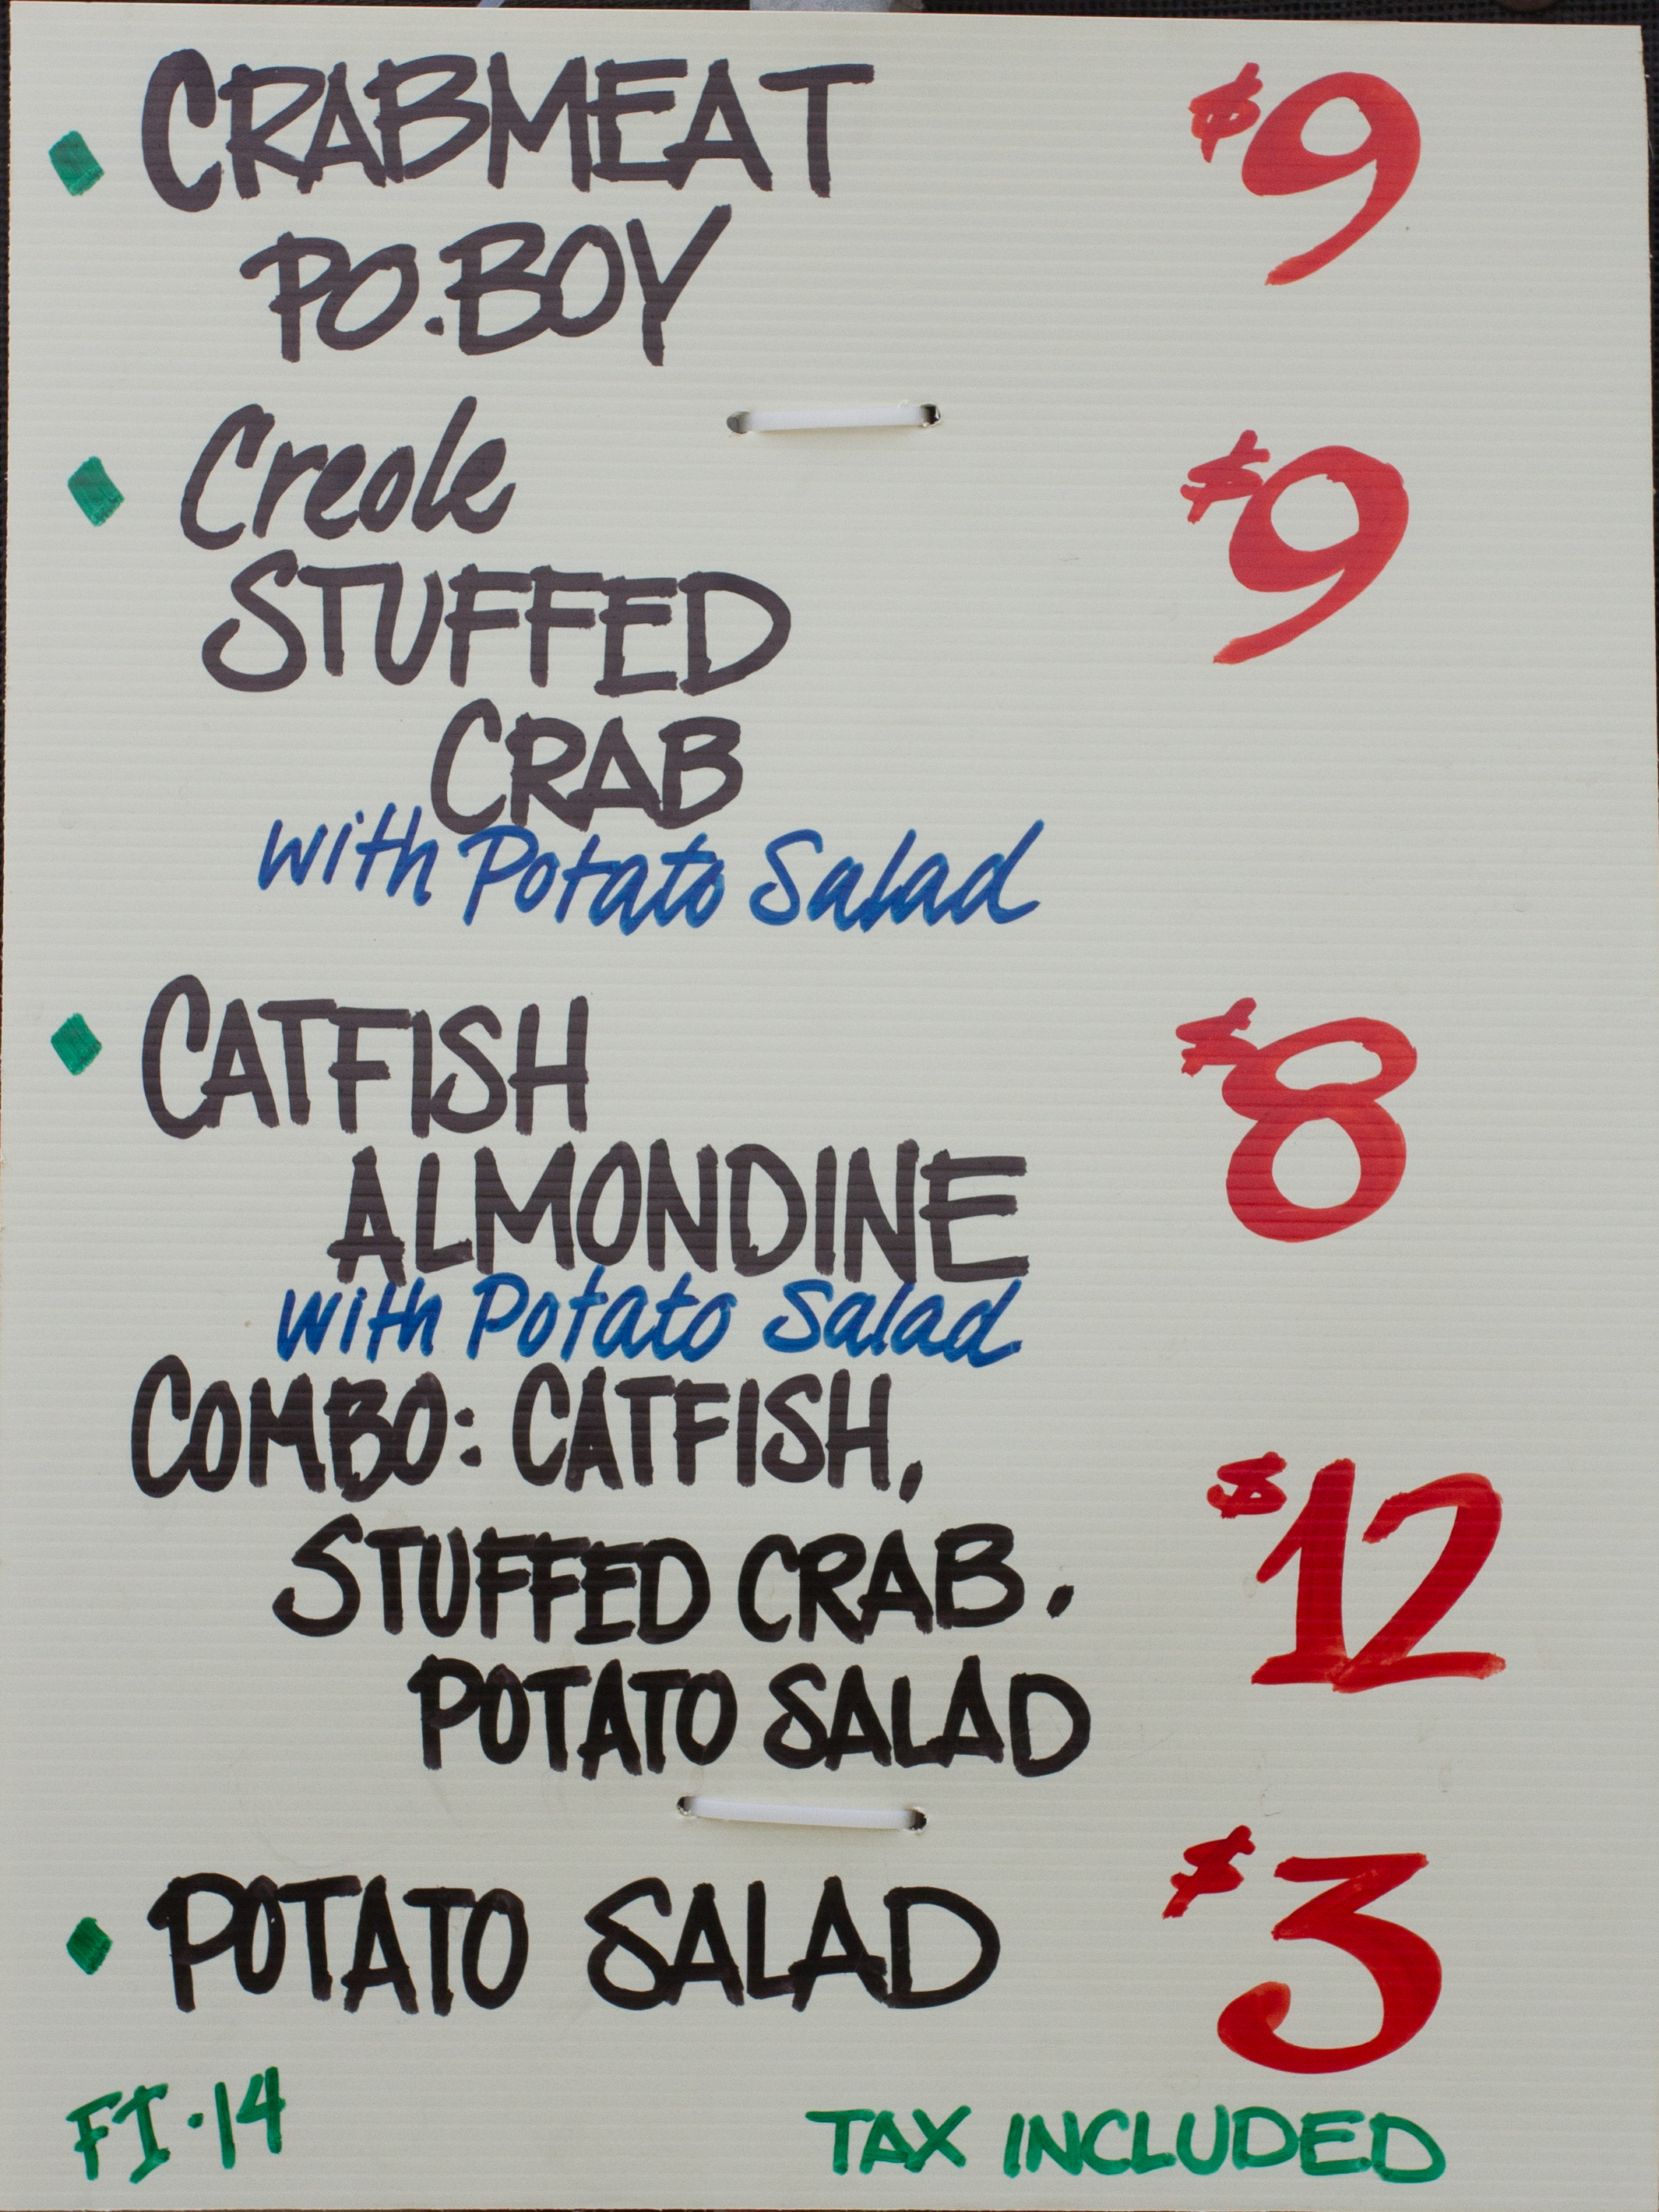 CRABMEAT $9
PO.BOY
Creole $9
STUFFED
CRAB
with Potato Salad
CATFISH $8
ALMONDINE
with Potato Salad
COMBO: CATFISH,
STUFFED CRAB, $12
POTATO SALAD
POTATO SALAD $3
FI·14 TAX INCLUDED